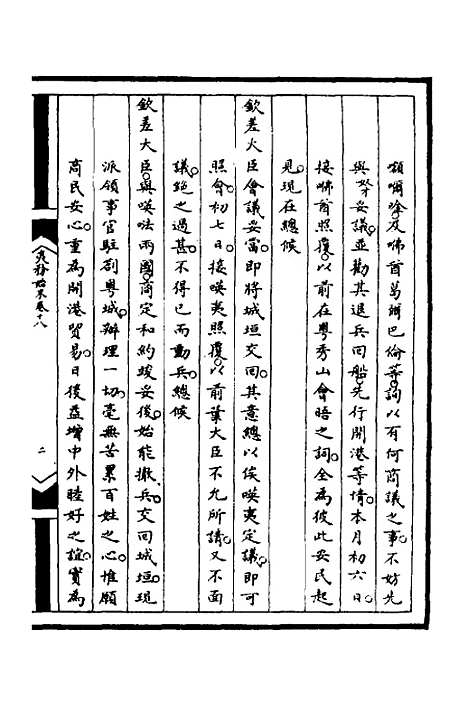 額爾唫及咈酋葛爾巴倫等詢以有何商議之事不妨先
與奴才妥議並勸其退兵回船先行開港等情本月初六日
接咈酋照覆以前在粵秀山會晤之詞全為彼此安民起
見現在總候
欽差大臣會議妥當即將城垣交回其意總以俟𠸄夷定議即可
照會初七日接𠸄夷照覆以前葉大臣不允所請又不面
議絕之過甚不得已而動兵總候
欽差大臣與𠸄咈兩國商定和約竣妥後始能撤兵交回城垣現
派領事官駐劄粵城辦理一切毫無苦累百姓之心惟願
商民安心重為開港貿易日後益增中外睦好之誼實為
夷務始末卷十八
二